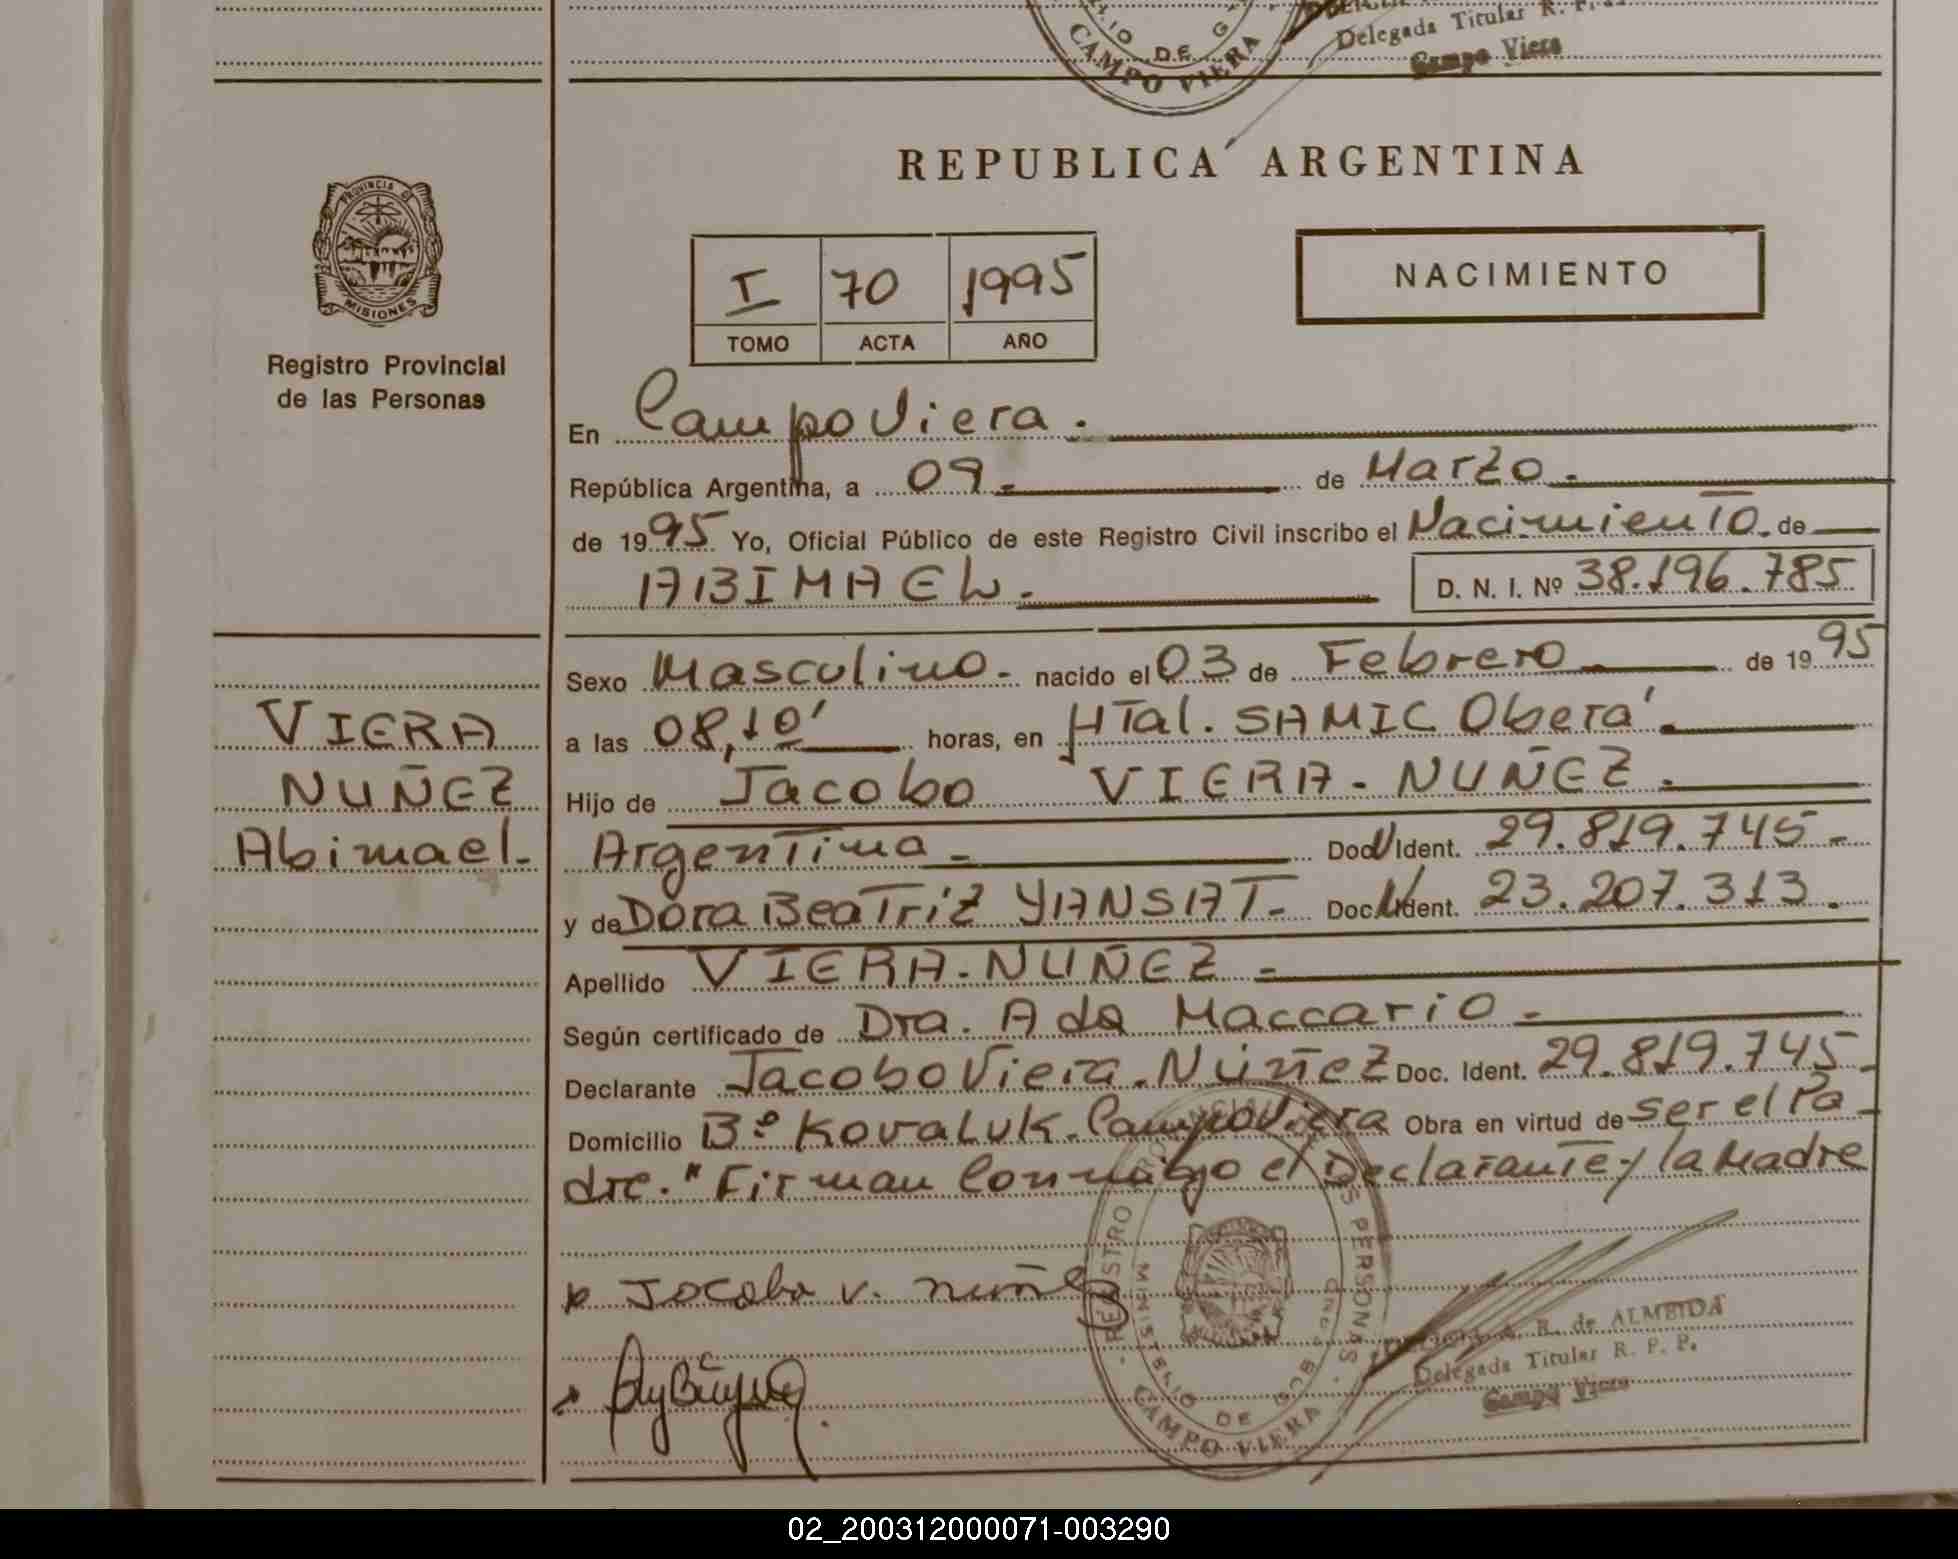 Delegada Titular R. P.
Campo Viera
DE G
CAMPO VIERA
REPUBLICA ARGENTINA
PROVINCIA DE
MISIONES
Registro Provincial
de las Personas
I 70 1995
TOMO ACTA AÑO
NACIMIENTO
En Campo Viera.
República Argentina, a 09. de Marzo.
de 1995 Yo, Oficial Público de este Registro Civil inscribo el Nacimiento. de
ABIMAEL. D. N. I. Nº 38.196.785
Sexo Masculino. nacido el 03 de Febrero de 1995
VIERA
a las 08,10' horas, en HTal. SAMIC Oberá.
NUÑEZ
Hijo de Jacobo VIERA-NUÑEZ.
Abimael.
Argentina Doc. Ident. 29.819.745-
y de Dora Beatriz YANSAT- Doc. Ident. 23.207.313.
Apellido VIERA-NUÑEZ -
Según certificado de Dra. Ada Maccario -
Declarante Jacobo Viera-Núñez Doc. Ident. 29.819.745-
Domicilio Bº Kovaluk-Campo Viera Obra en virtud de ser el Pa-
dre." Firman Conmigo el Declarante y la Madre
Jacobo V. nuñez
REGISTRO PROVINCIAL DE LAS PERSONAS
MINISTERIO DE GOB
CAMPO VIERA
R. de ALMEIDA
Delegada Titular R. P. P.
Campo Viera
02_200312000071-003290